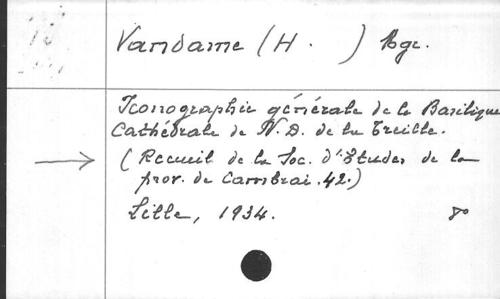 Vandame (H. ) Mgr.
Iconographie générale de la Basilique
Cathédrale de N. D. de la Treille.
(Recueil de la Soc. d'Études de la
prov. de Cambrai. 42.)
Lille, 1934. 8°